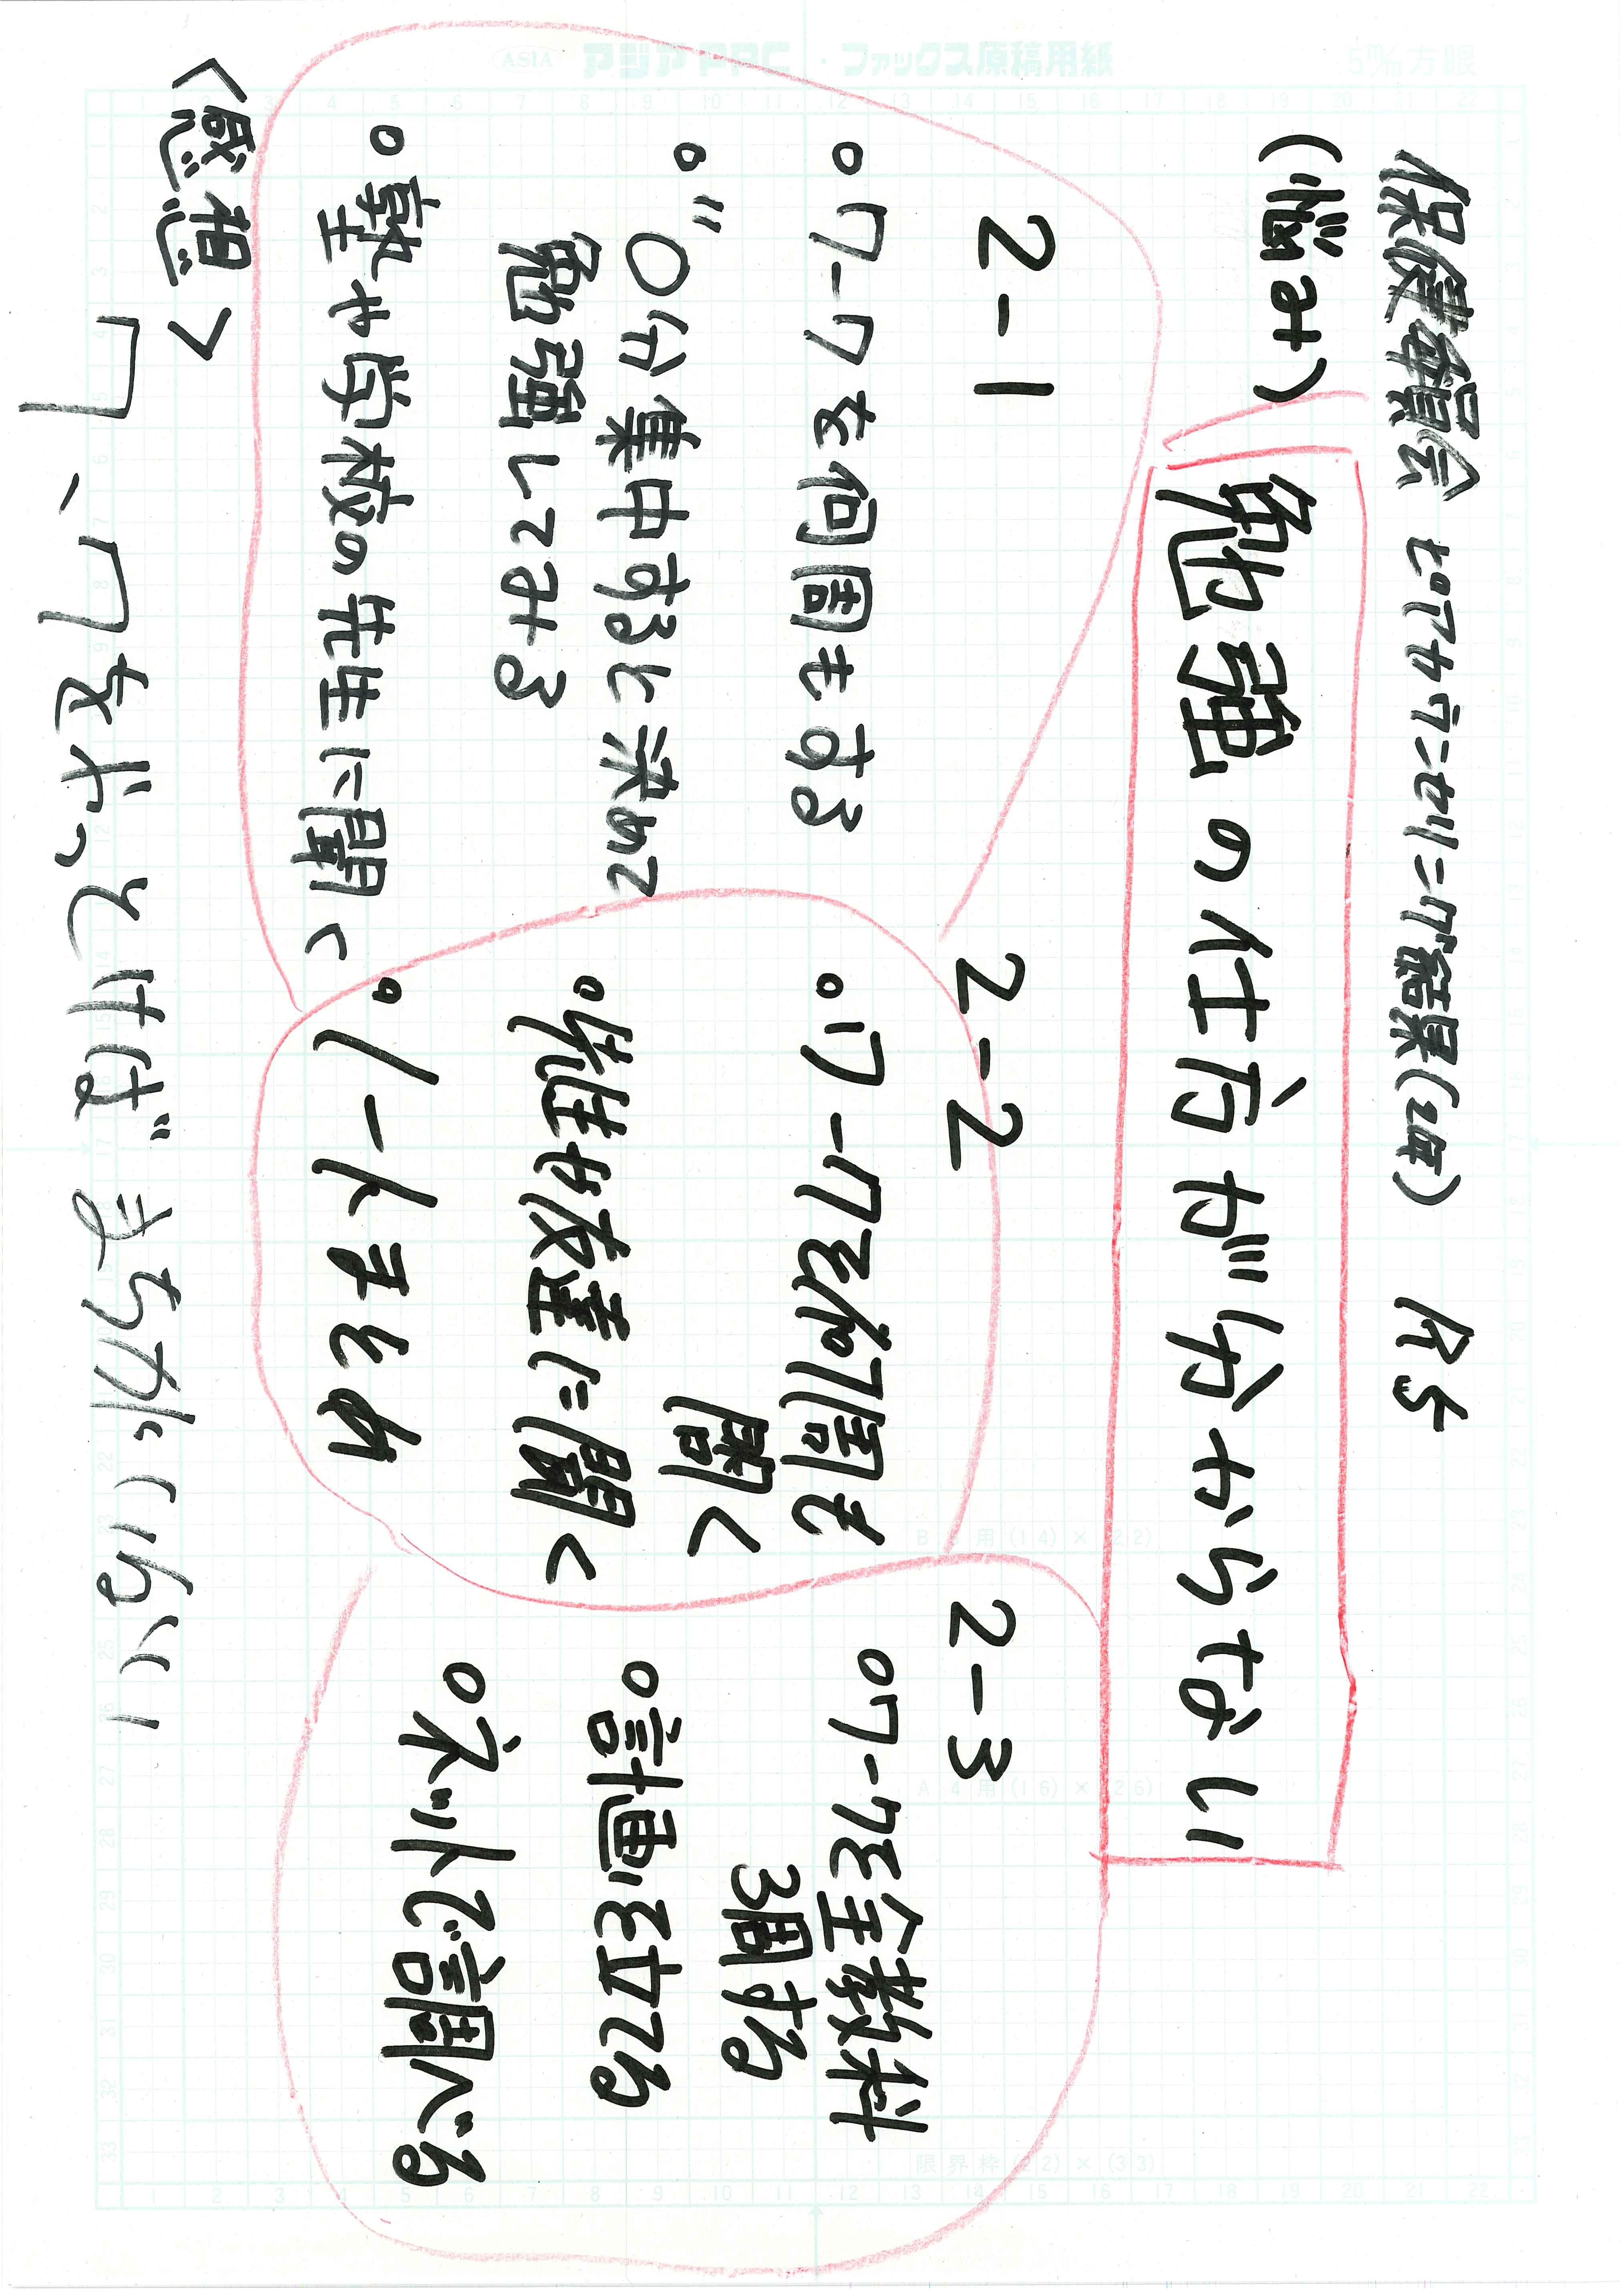 保健委員会 ピアカウンセリング結果(2年) R5
(悩み) 勉強の仕方が分からない
2-1
○ワークを何周もする
○"〇分集中すると決めて
勉強してみる
○塾や学校の先生に聞く
2-2
○ワークを何周も
聞く
○先生や友達に聞く
○ノートまとめ
2-3
○ワークを全教科
3周する
○計画を立てる
○ネットで調べる
<感想>
アジアPPC・ファックス原稿用紙
ASIA
5m/m方眼
B5用(14)×(22)
A4用(16)×(26)
限界枠(22)×(33)